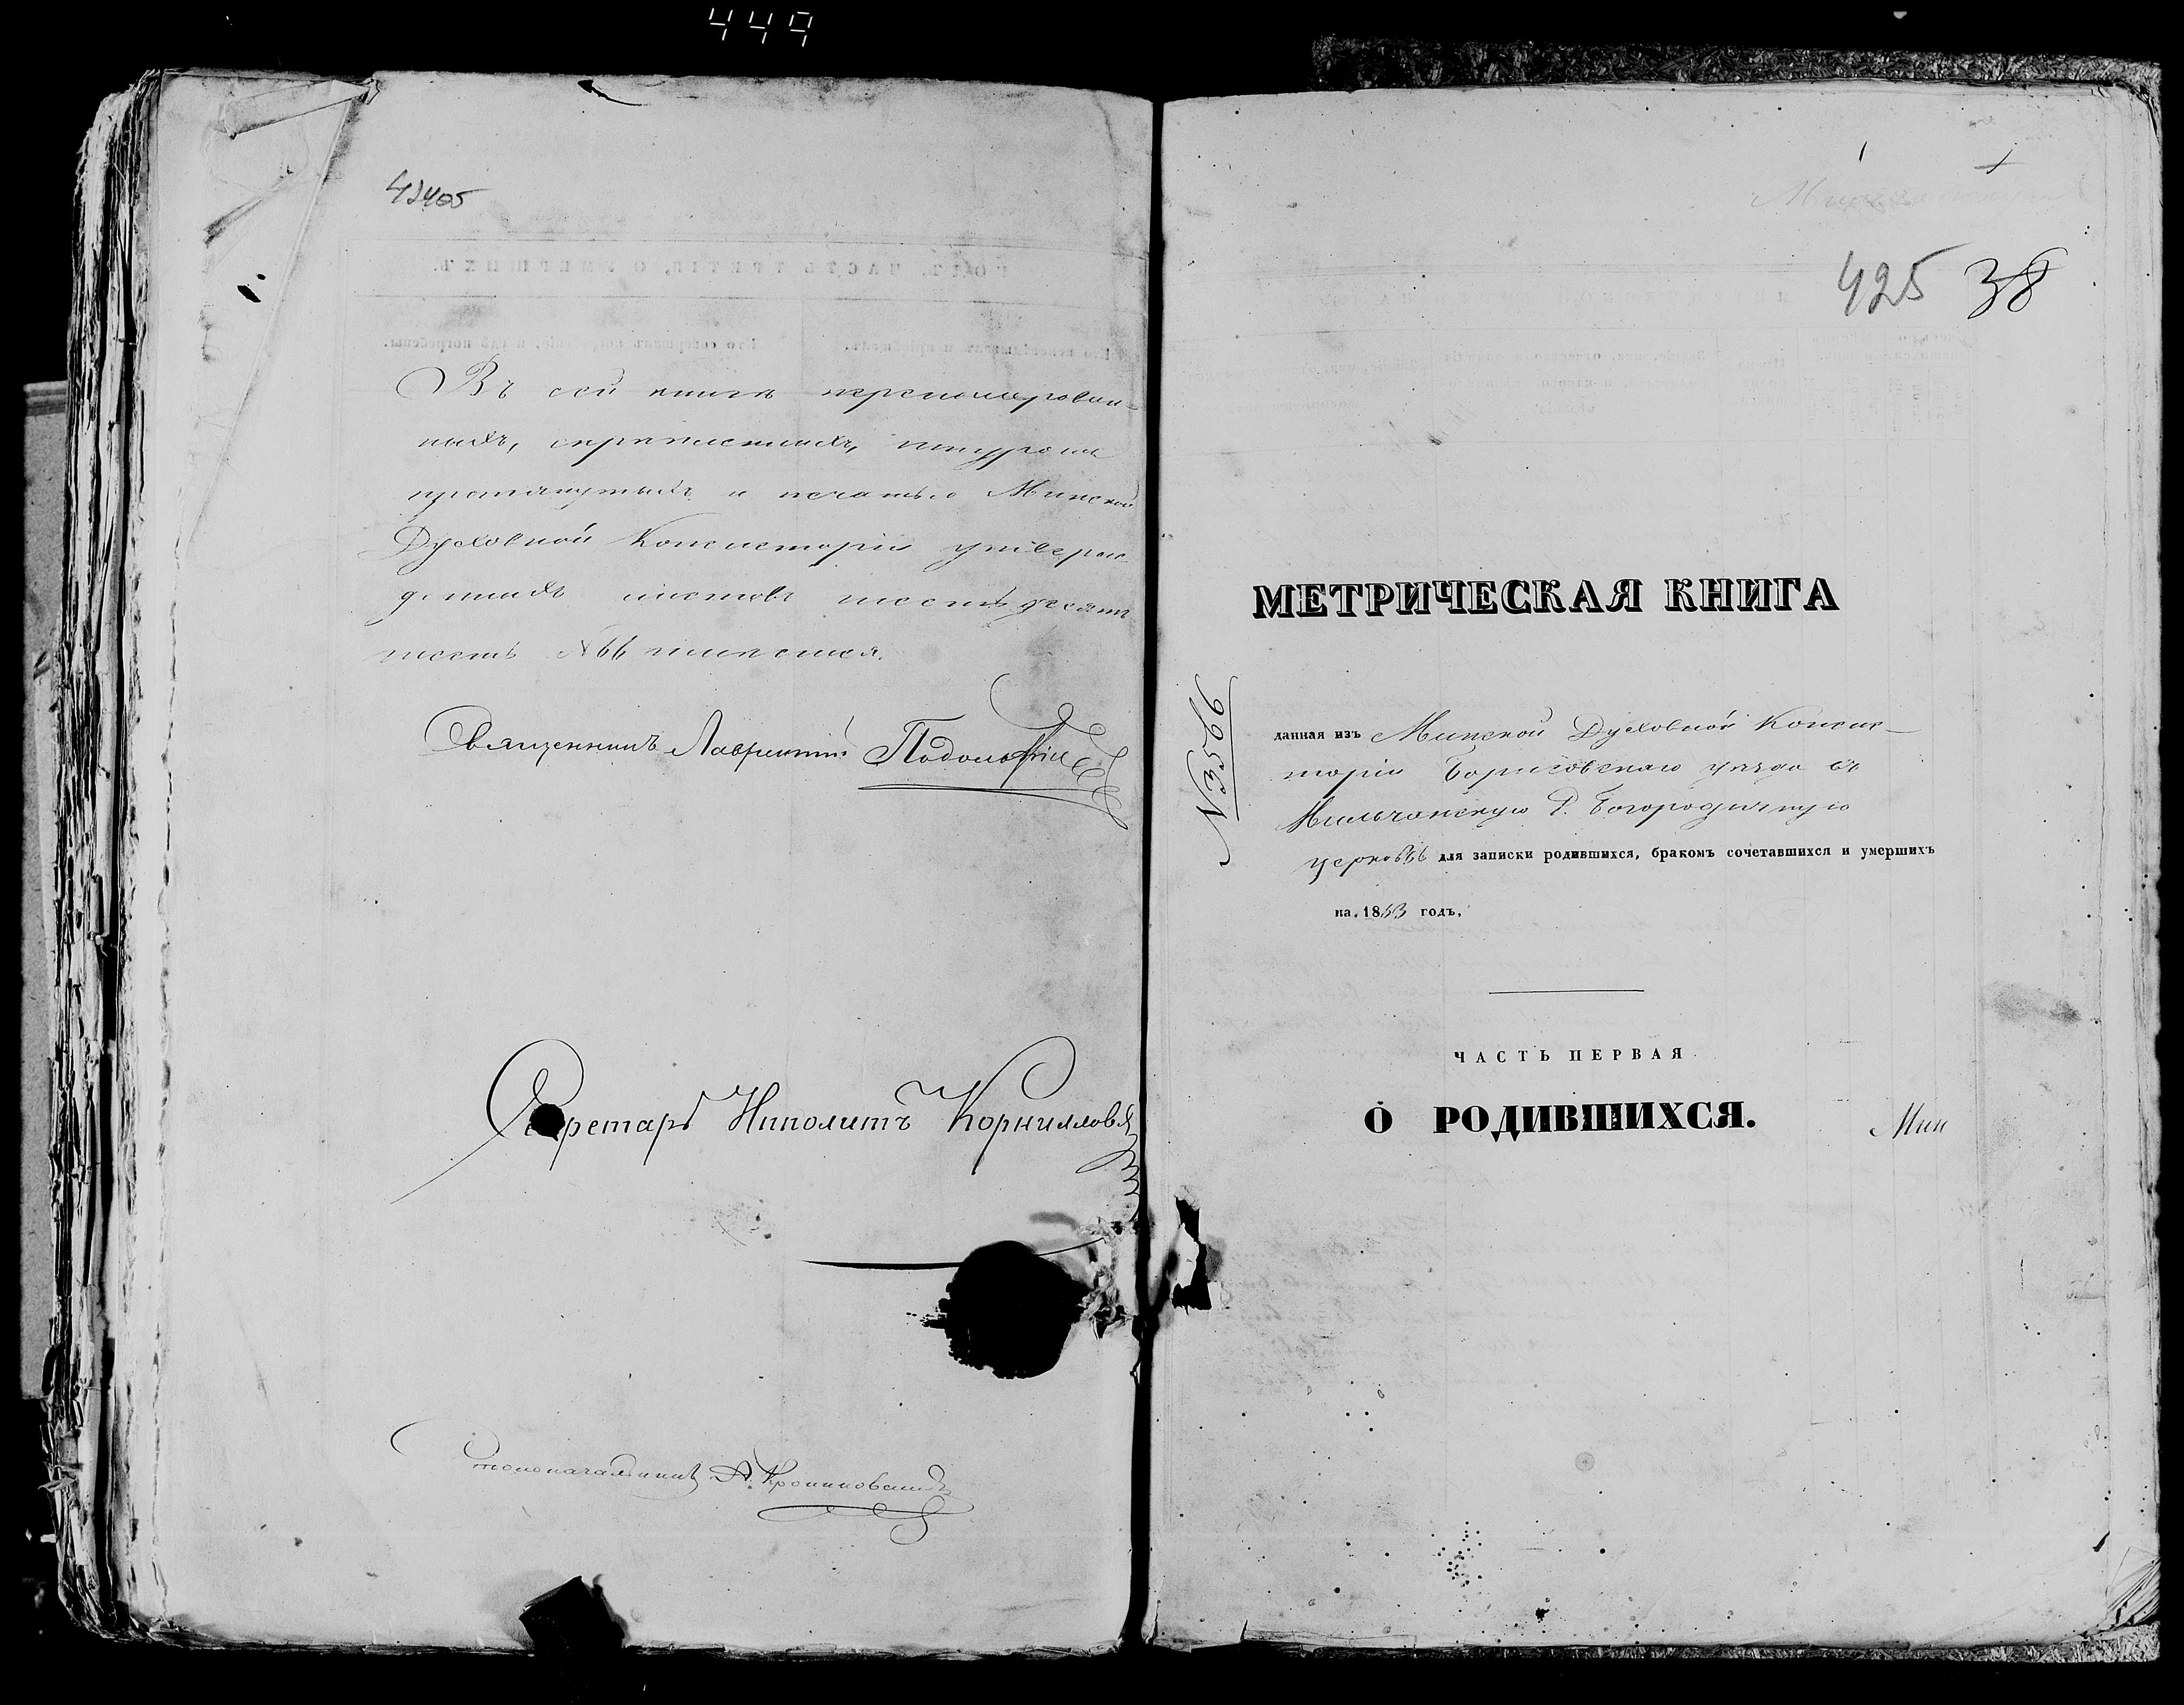 449
Въ сей книгѣ перенумерован-
ныхъ, скрѣпленныхъ, шнуромъ
протянутыхъ и печатью Минской
Духовной Консисторіи утверж-
денныхъ листовъ шестьдесятъ
шесть №66 имѣется.
Священникъ Лаврентій Подольскій
Секретарь Ипполитъ Корниловъ
Столоначальникъ
425 38
МЕТРИЧЕСКАЯ КНИГА
№3566
данная изъ Минской Духовной Консис-
торіи Борисовскаго уѣзда въ
Мильчанскую Р. Богородичную
церковь для записки родившихся, бракомъ сочетавшихся и умершихъ
на 1863 годъ.
ЧАСТЬ ПЕРВАЯ
О РОДИВШИХСЯ.
Мин